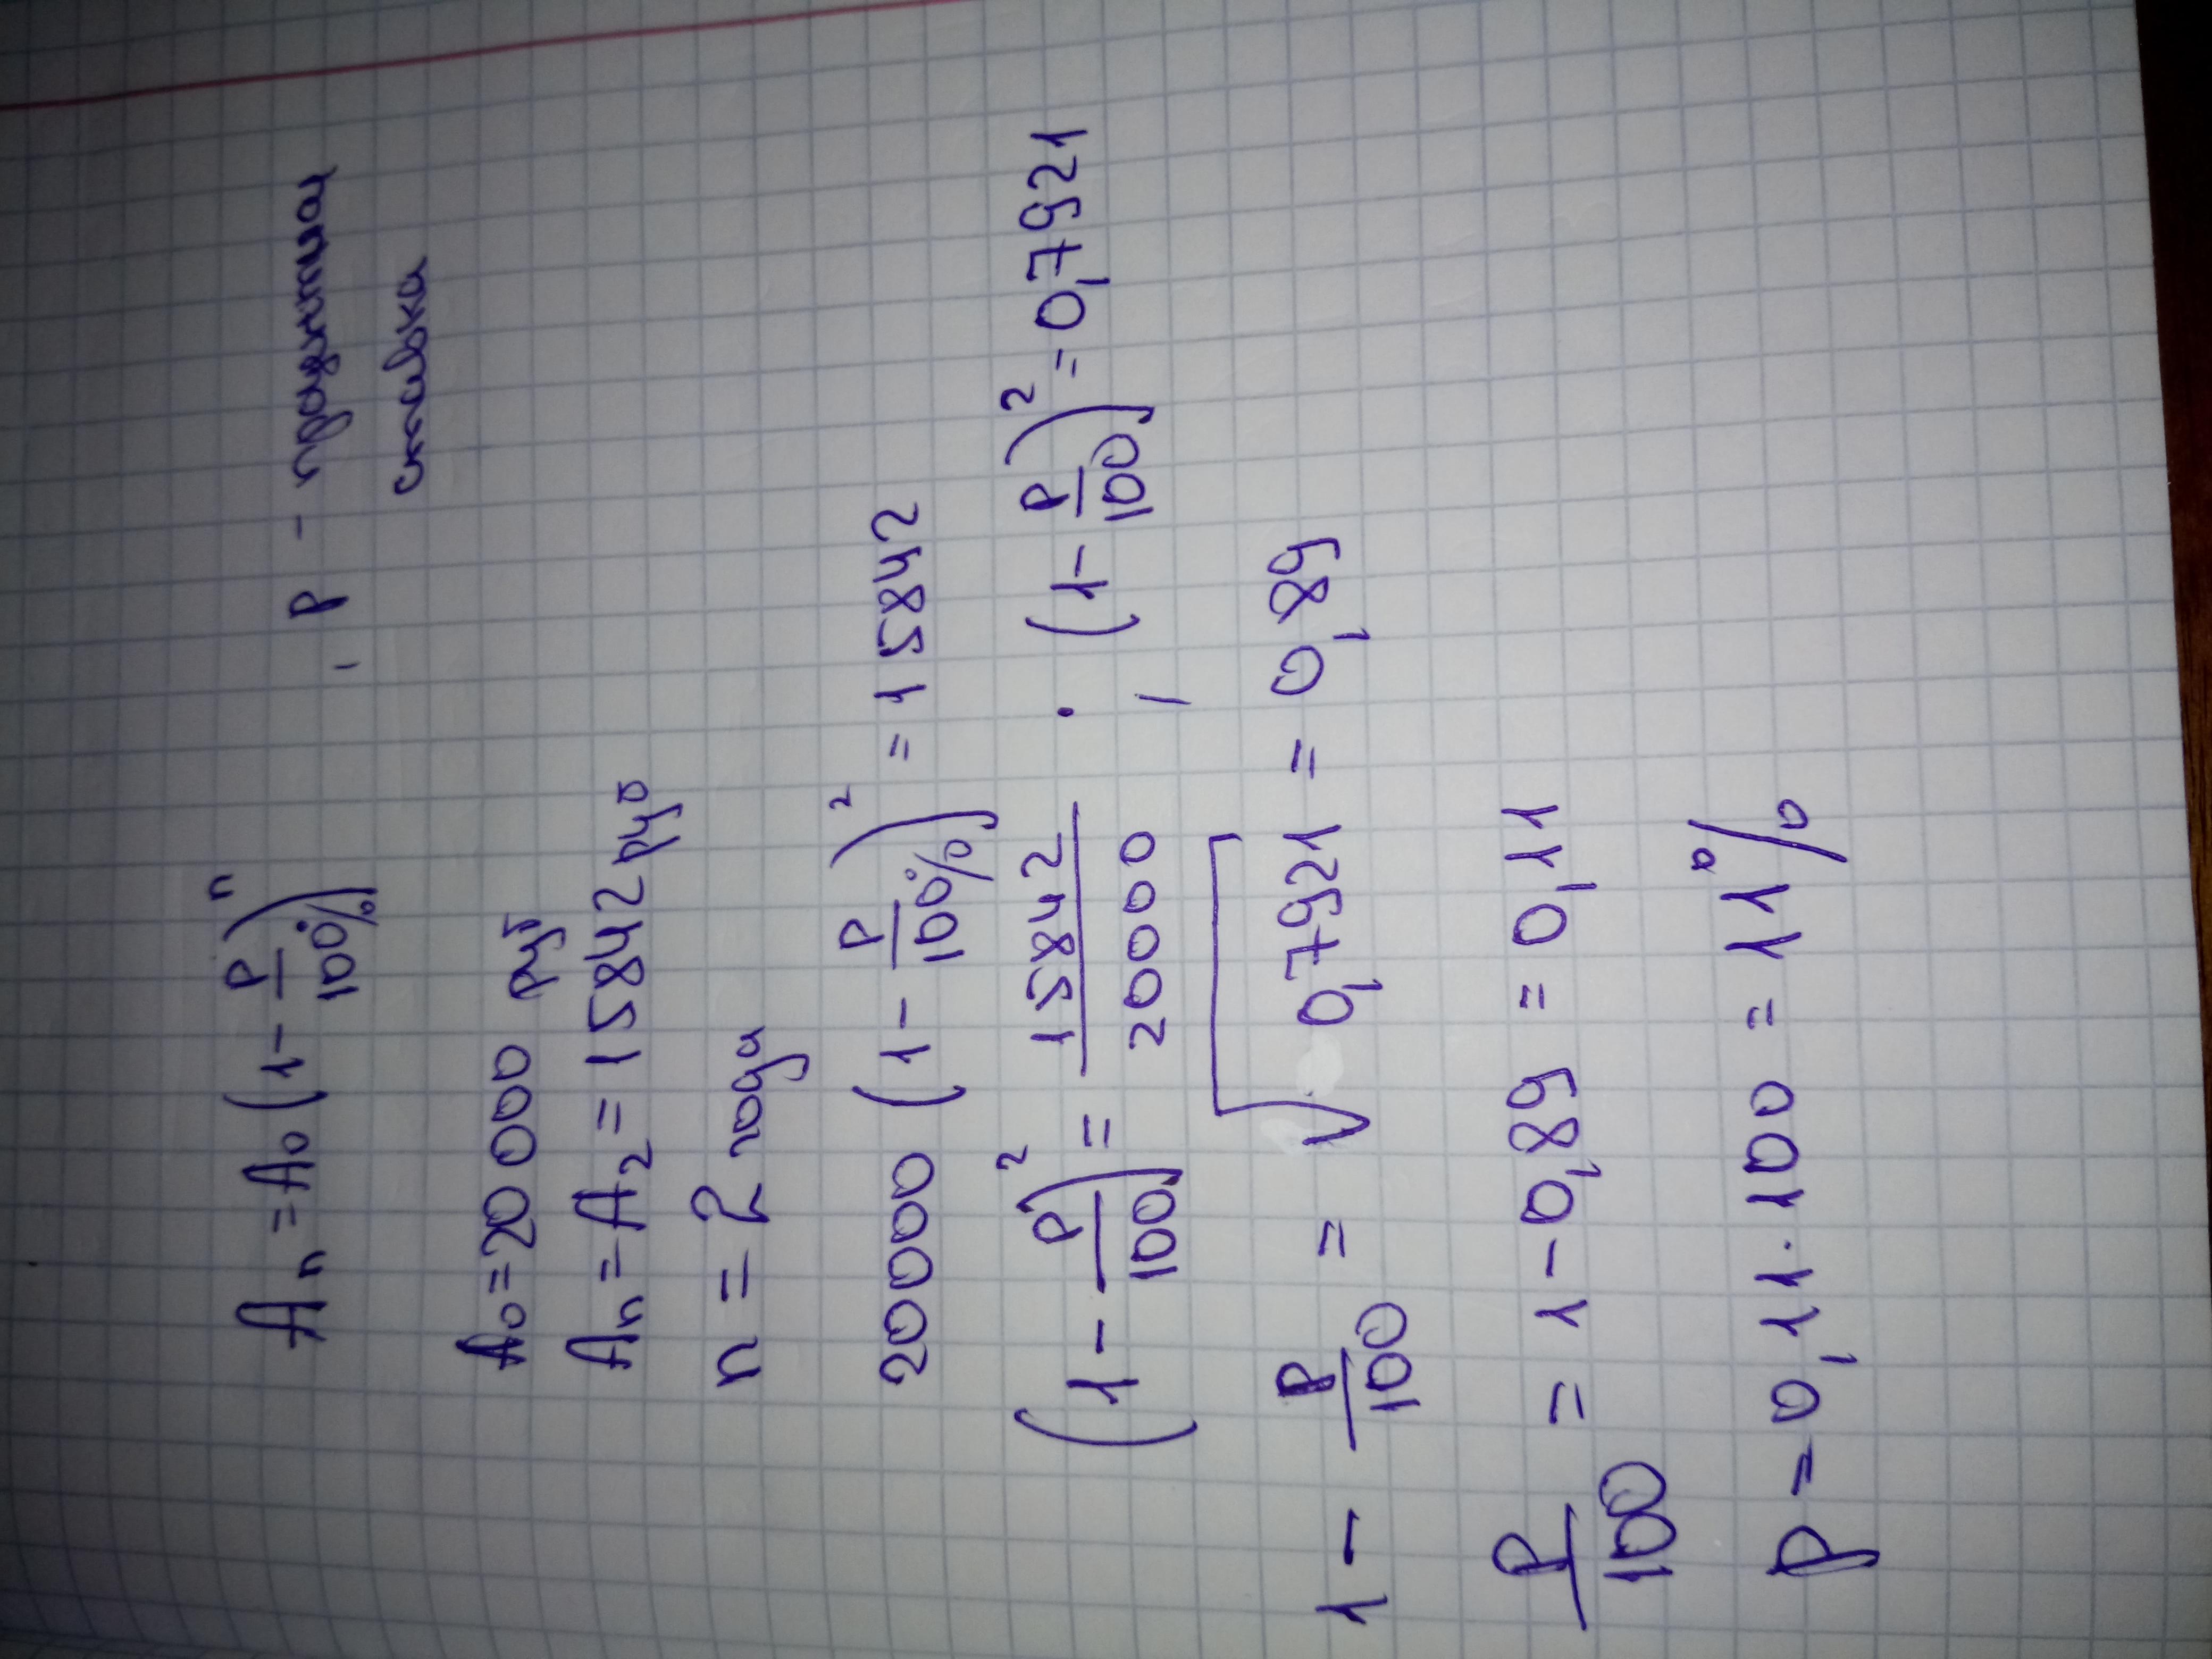 Aₙ = A₀ (1 - P/100%)ⁿ , P - процентная
ставка
A₀ = 20 000 руб
Aₙ = A₂ = 15842 руб
n = 2 года
20000 (1 - P/100%)² = 15842
(1 - P/100)² = 15842/20000 ; (1 - P/100)² = 0,7921
1 - P/100 = √0,7921 = 0,89
P/100 = 1 - 0,89 = 0,11
P = 0,11 · 100 = 11%